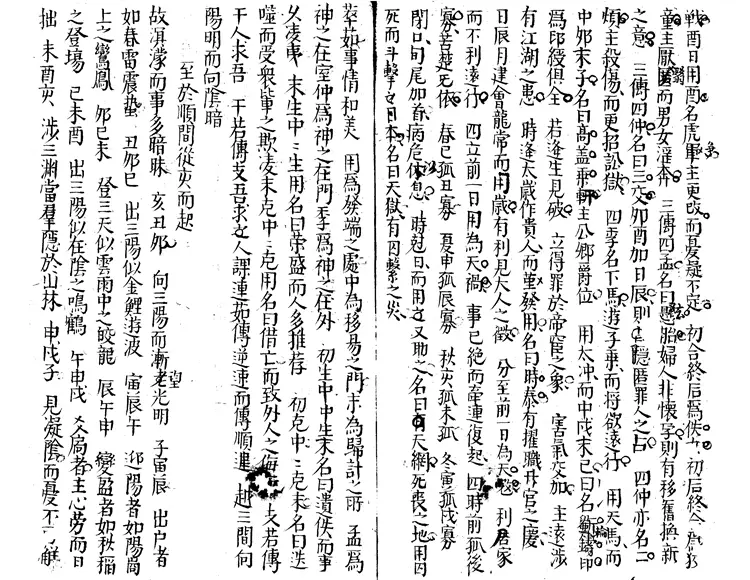 戰酉日用酉名虎軍主更改而憂疑不定 初合終后為佚女 初后終合為狡
童主厭翳而男女淫奔 三傳四孟名曰懸胎婦人非懷孕則有移舊換新
之意 三傳四仲名曰三交夘酉加日辰則主隱匿罪人之占 四仲亦名二
煩主殺傷而更招訟獄 四季名下馬游子乗而將欲遠行 用天馬而
中夘末子名曰高盖乗軒主公卿爵位 用太冲而中戌末巳曰名斵輪印
為印綬俱全 若逢生見破 立得罪於帝
有江湖之患 時逢太歲作貴人而發用名曰時泰有擢職升官之慶
日辰月建會龍常而用歲有利見天人之徵 分至前一日為天 利居家
而不利遠行 四立前一日用為天禍 事已絶而牽連復起 四時前孤後
寡苦楚无依 春巳孤丑寡 夏申孤辰寡 秋亥孤未孤 冬寅孤戌寡
閉口旬尾加首病危休息 時尅日而用又助之名曰天網死喪之地用囚
死而斗擊之日本名曰天獄有囚繫之災
莘茹事情和美 用為發端之處中為移易之門末為歸計之所 孟為
神之在室仲為神之在門季為神之在外 初生中中生末名曰遺佚而事
久凌夷 末生中中生用名曰榮盛而人多推荐 初克中中克末名曰迭
噬而受衆輩之欺凌末克中中克用名曰借亡而致外人之侮 支若傳
干人求吾 干若傳支吾求之人課連茹傳逆連而傳順進 越三間向
陽明而向陰暗
至於順間從亥而起
故溟濛而事多暗昧 亥丑夘 向三陽而漸望光明 子寅辰 出户者
如春雷震蟄 丑夘巳 出三陽似金鯉游波 寅辰午 迎陽者如陽
上之鸞鳳 夘巳未 登三天似雲雨中之蛟龍 辰午申 變盈者如秋稲
之登場 巳未酉 出三陽似在陰之鳴鶴 午申戌 者主心勞而日
拙 未酉亥 涉三渊當羣隱於山林 申戌子 見凝陰而憂不解